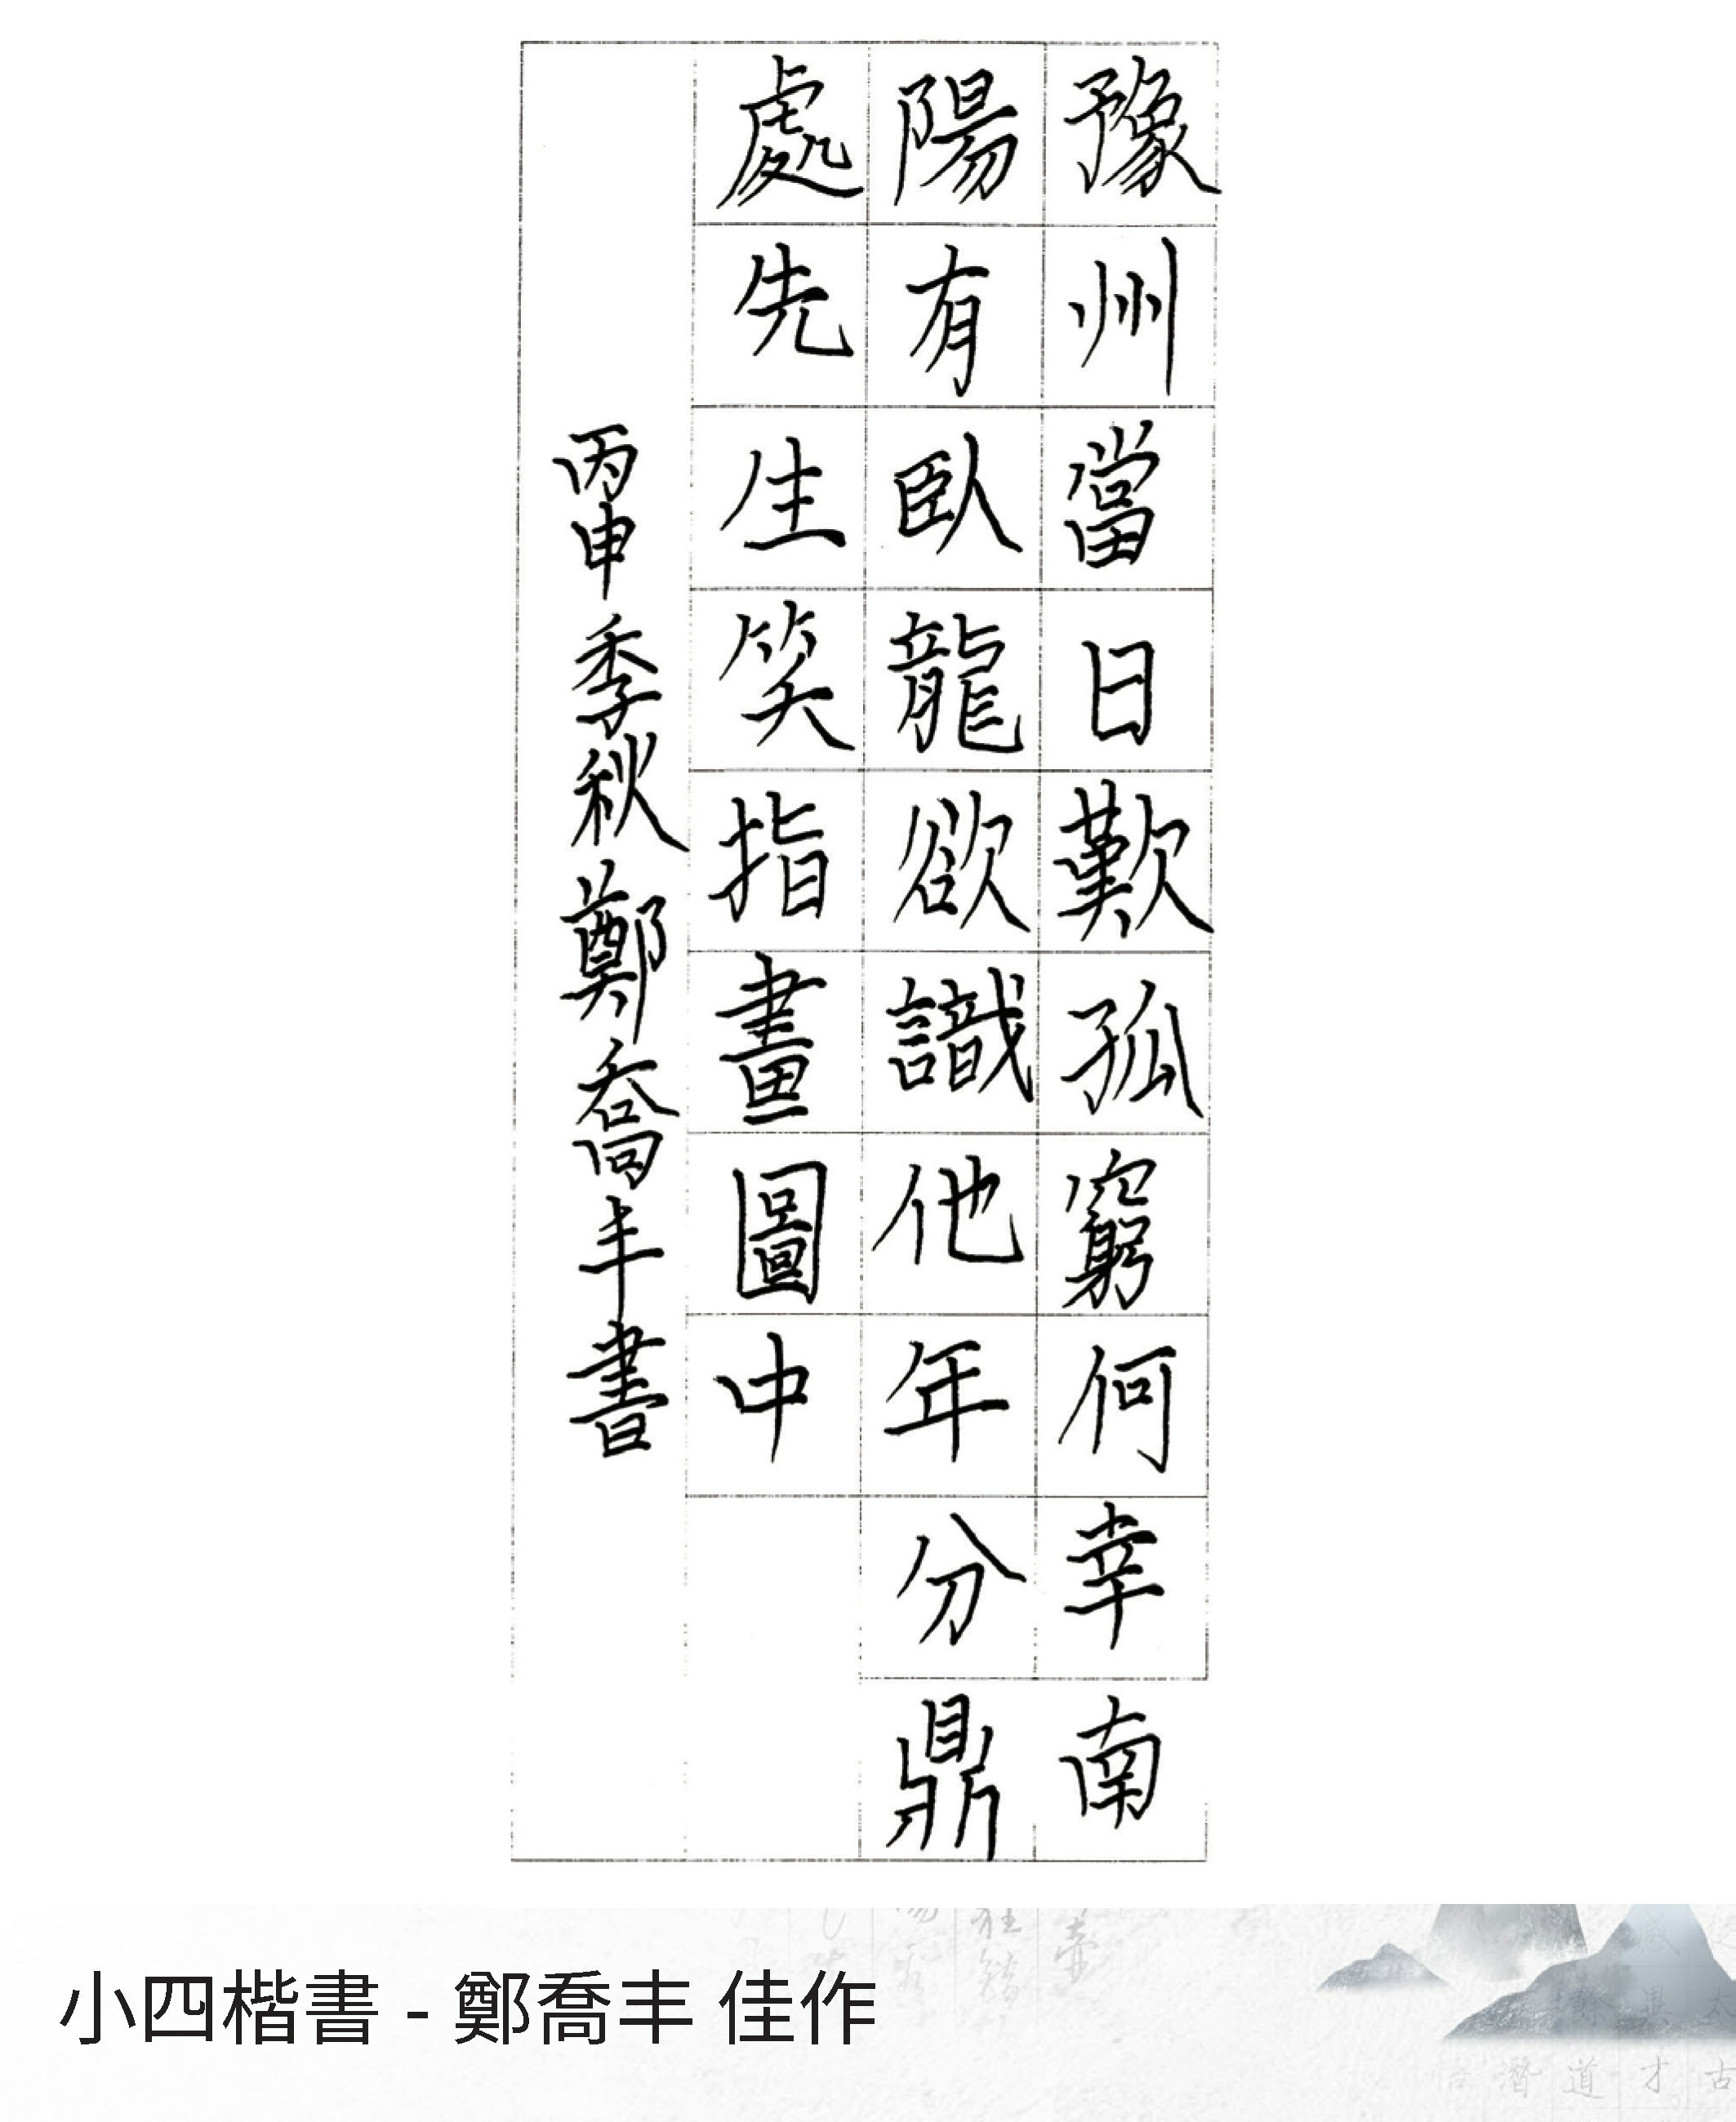 豫州當日歎孤窮何幸南
陽有臥龍欲識他年分鼎
處先生笑指畫圖中
丙申季秋鄭喬丰書
小四楷書 - 鄭喬丰 佳作